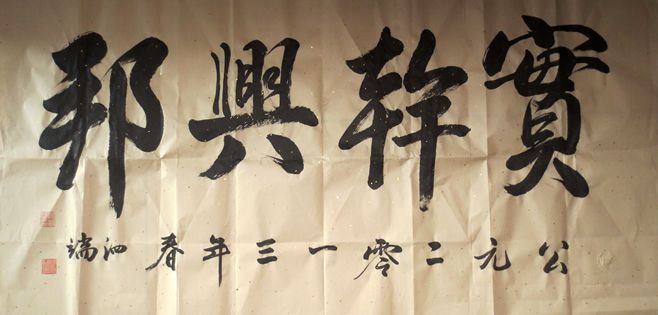 實幹興邦
公元二零一三年春泗端